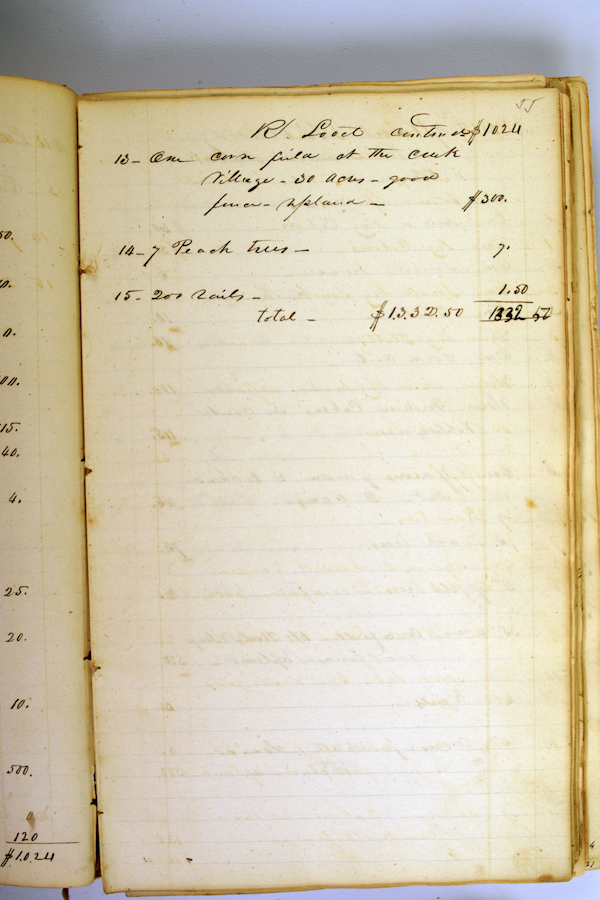 50.
0.
0.
00.
15.
40.
4.
25.
20.
10.
500.
120
$1024
55
R. continued $1024
13 - One corn field at the creek
Village - 30 acres - good
fence - upland - $300.
14 - 7 Peach trees - 7.
15 - 200 rails - 1.50
total - $1332.50 1332 50